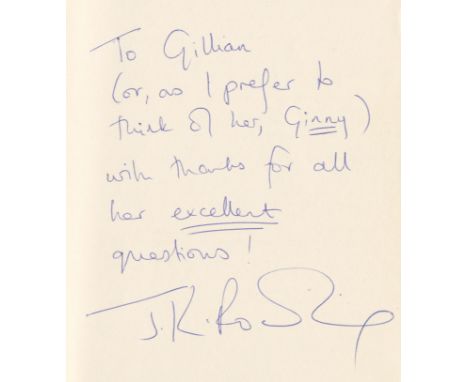 To Gillian
(or, as I prefer to
think of her, Ginny)
with thanks for all
her excellent
questions!
J.K. Rowling